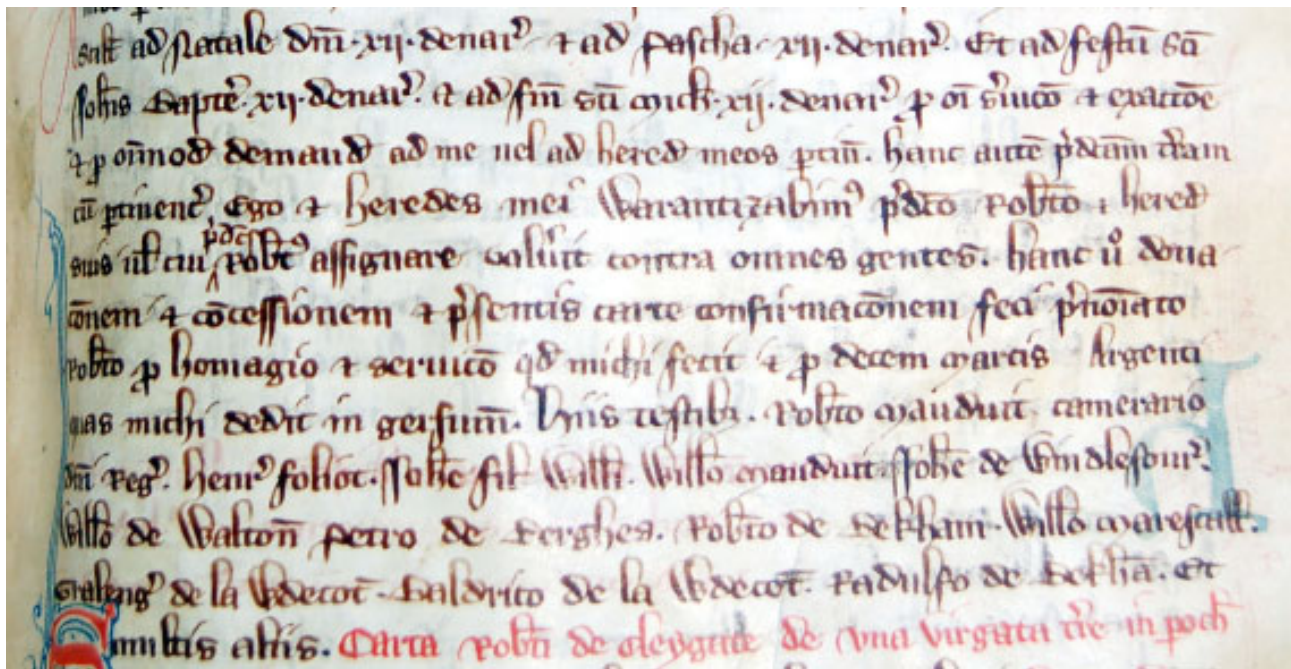 scilt ad Natale dm̄. xij. denar̉. ⁊ ad Pascha. xij. denar̉. Et ad festū sc̄i
Joh̄is Bapte̅. xij. denar̉. ⁊ ad fm̄ sc̄i Mich̄. xij. denar̉ ꝑ oī s̉uicō ⁊ exaccōe
⁊ ꝑ om̄imod demand ad me uel ad hered meos ꝑtin̄. hanc autē p̉dc̄am t̄ram
cū ꝑtinenc̉. Ego ⁊ heredes mei Warantizabim⁹ p̉dc̄o Rob̄to ⁊ hered
suis ul̄ cui p̉dc̄s Rob̄t⁹ assignare uolủit contra omnes gentes. hanc ů dona
cōnem ⁊ cōcessionem ⁊ p̉sentis carte confirmacōnem feci p̉noīato
Rob̄to ꝓ homagio ⁊ seruicō qd̄ michi fecit ⁊ ꝓ decem marcis Argenti
quas michi dedit in gersum̄. Hiis testibȝ. Rob̄to Mauduit camerario
dn̄i Reg̉. Henr̉ foliot. Joh̄e fil̄ Will̄i. Will̄o Mauduit. Joh̄e de Windlesour̉.
Will̄o de Walton̄ Petro de Berghes. Rob̄to de Bekham. Will̄o Marescall̄.
de la Wdecot̄. Baldrico de la Wdecot̄. Radulfo de Bekhā. Et
multis aliis. Carta Rob̄ti de Cleygate de vna virgata t̄re in poch̄